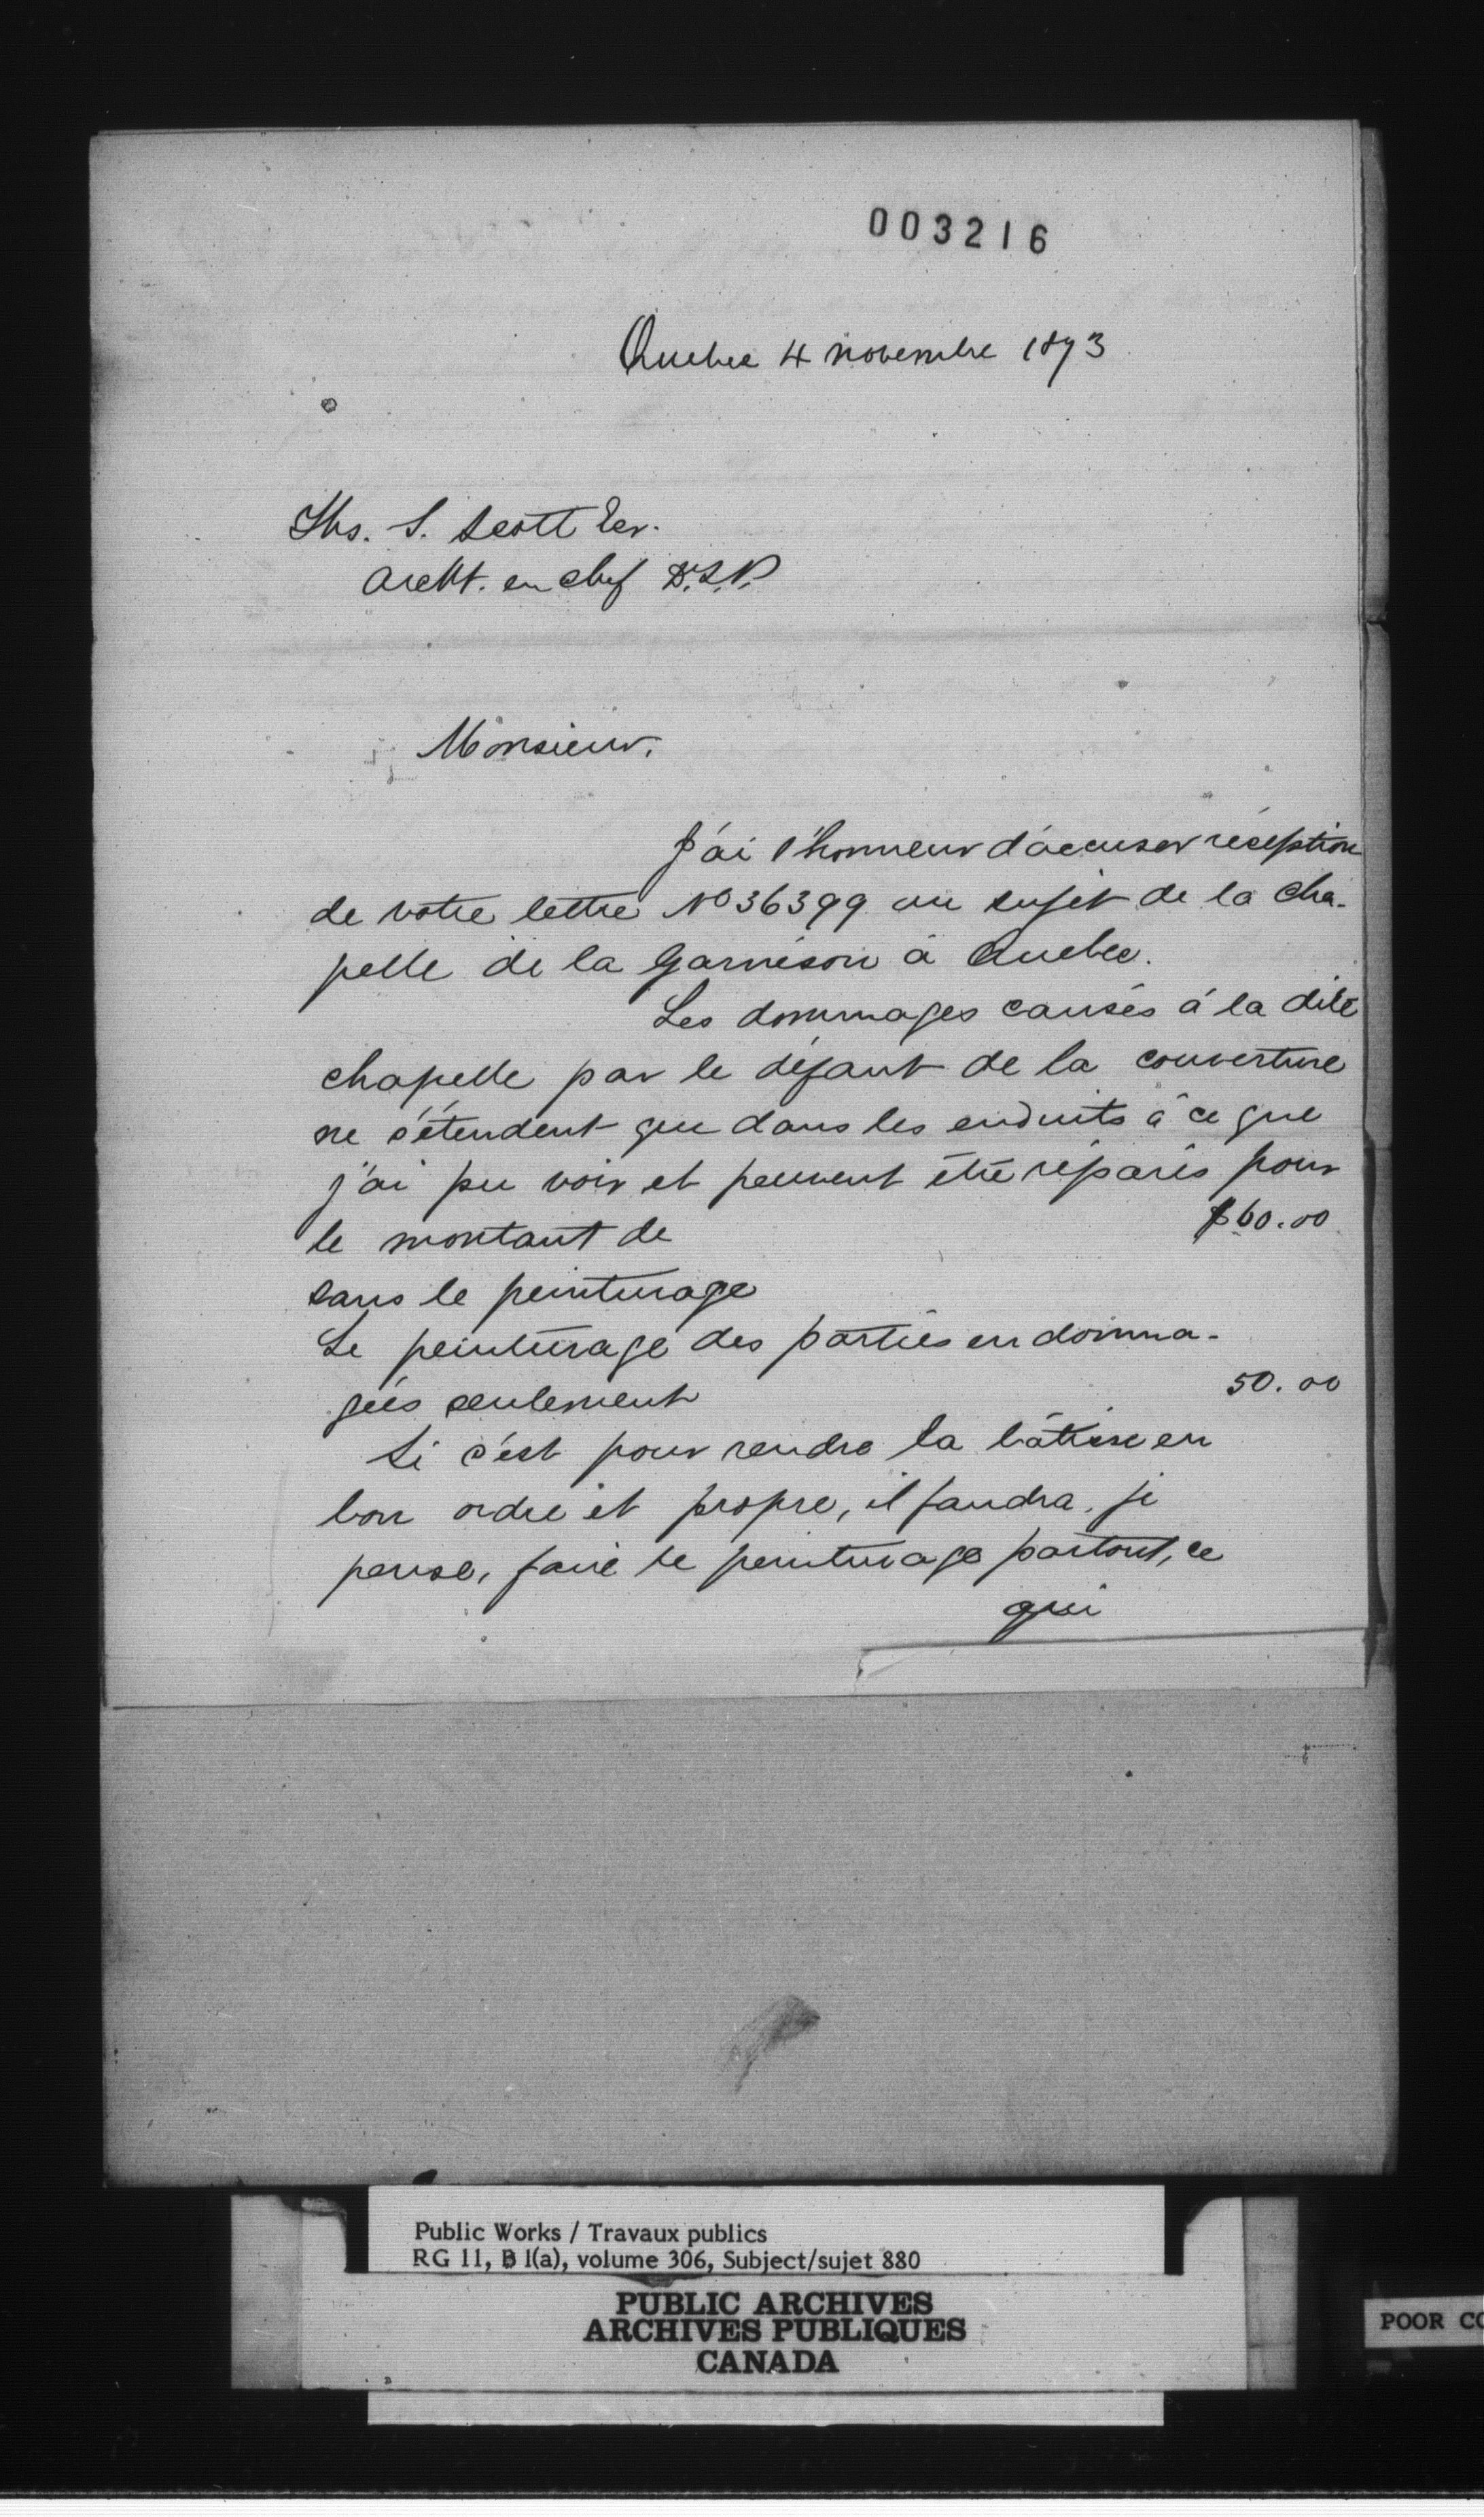 003216
Quebec 4 novembre 1873
Ths. S. Scott Ecr.
Archt. en chef D.T.P.
Monsieur,
J'ai l'honneur d'accuser réception
de votre lettre No 36399 au sujet de la cha-
pelle de la Garnison à Quebec.
Les dommages causés à la dite
chapelle par le défaut de la couverture
ne s'étendent que dans les enduits à ce que
j'ai pu voir et peuvent être réparés pour
le montant de $60.00
sans le peinturage
Le peinturage des parties endomma-
gées seulement 50.00
Si c'est pour rendre la bâtisse en
bon ordre et propre, il faudra, je
pense, faire le peinturage partout, ce
qui
Public Works / Travaux publics
RG 11, B 1(a), volume 306, Subject/sujet 880
PUBLIC ARCHIVES
ARCHIVES PUBLIQUES
CANADA
POOR CO